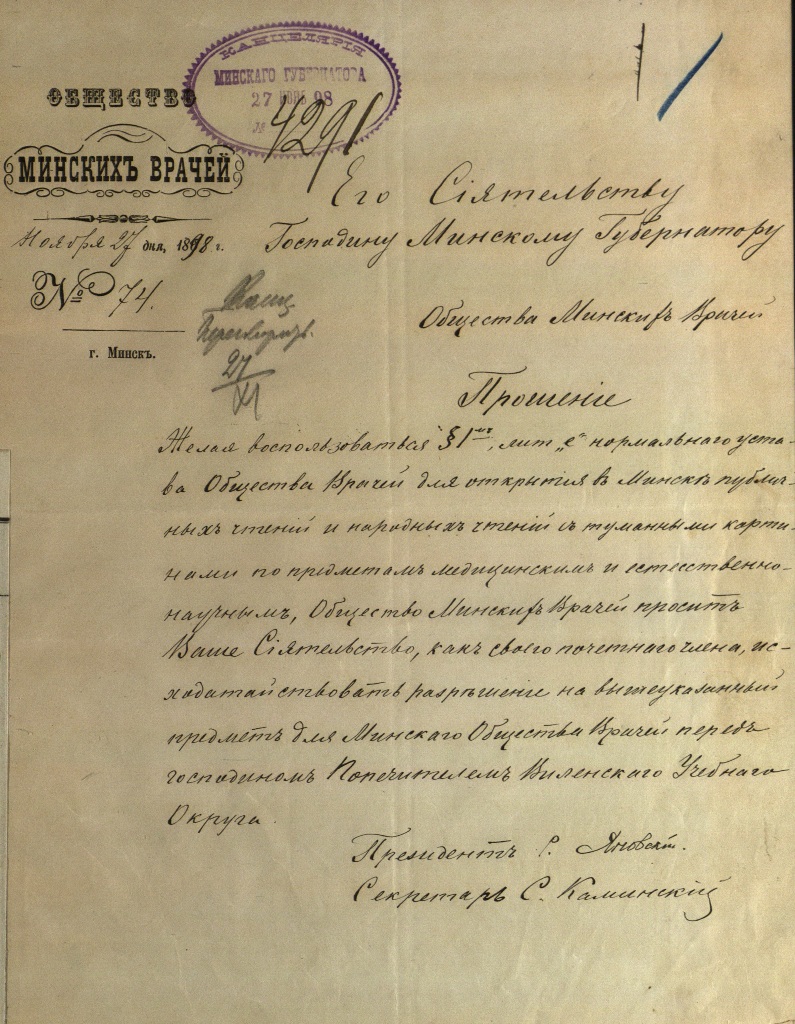 КАНЦЕЛЯРІЯ
МИНСКАГО ГУБЕРНАТОРА
27 НОЯ 98
№ 4291
ОБЩЕСТВО
МИНСКИХЪ ВРАЧЕЙ
Ноября 27 дня, 1898 г.
№ 74.
г. Минскъ.
27
XI
Его Сіятельству
Господину Минскому Губернатору
Общества Минскихъ Врачей
Прошеніе
Желая воспользоваться §1мъ, лит „е“ нормальнаго уста-
ва Общества Врачей для открытія въ Минскѣ публич-
ныхъ чтеній и народныхъ чтеній съ туманными карти-
нами по предметамъ медицинскимъ и естественно-
научнымъ, Общество Минскихъ Врачей проситъ
Ваше Сіятельство, какъ своего почетнаго члена, ис-
ходатайствовать разрѣшеніе на вышеуказанный
предметъ для Минскаго Общества Врачей передъ
господиномъ Попечителемъ Виленскаго Учебнаго
Округа.
Президентъ Яновскій.
Секретарь С. Каминскій